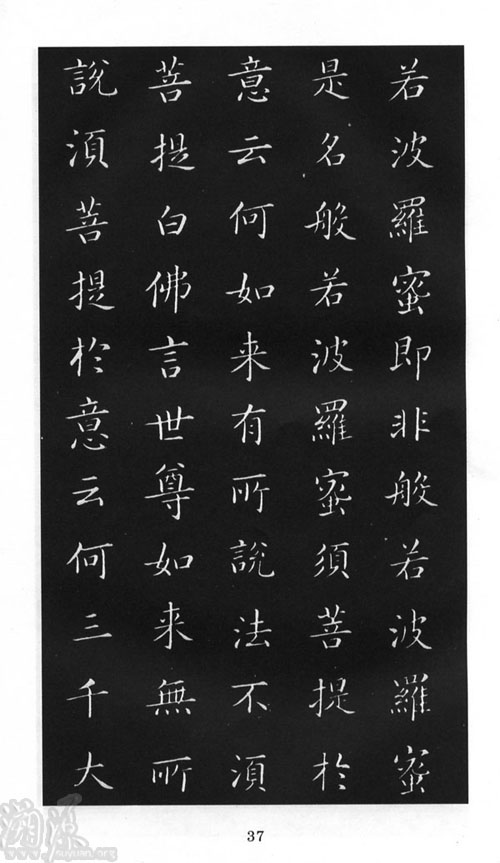 若波羅蜜即非般若波羅蜜
是名般若波羅蜜須菩提於
意云何如来有所說法不湏
菩提白佛言世尊如来無所
說湏菩提於意云何三千大
37
www.suyuan.org